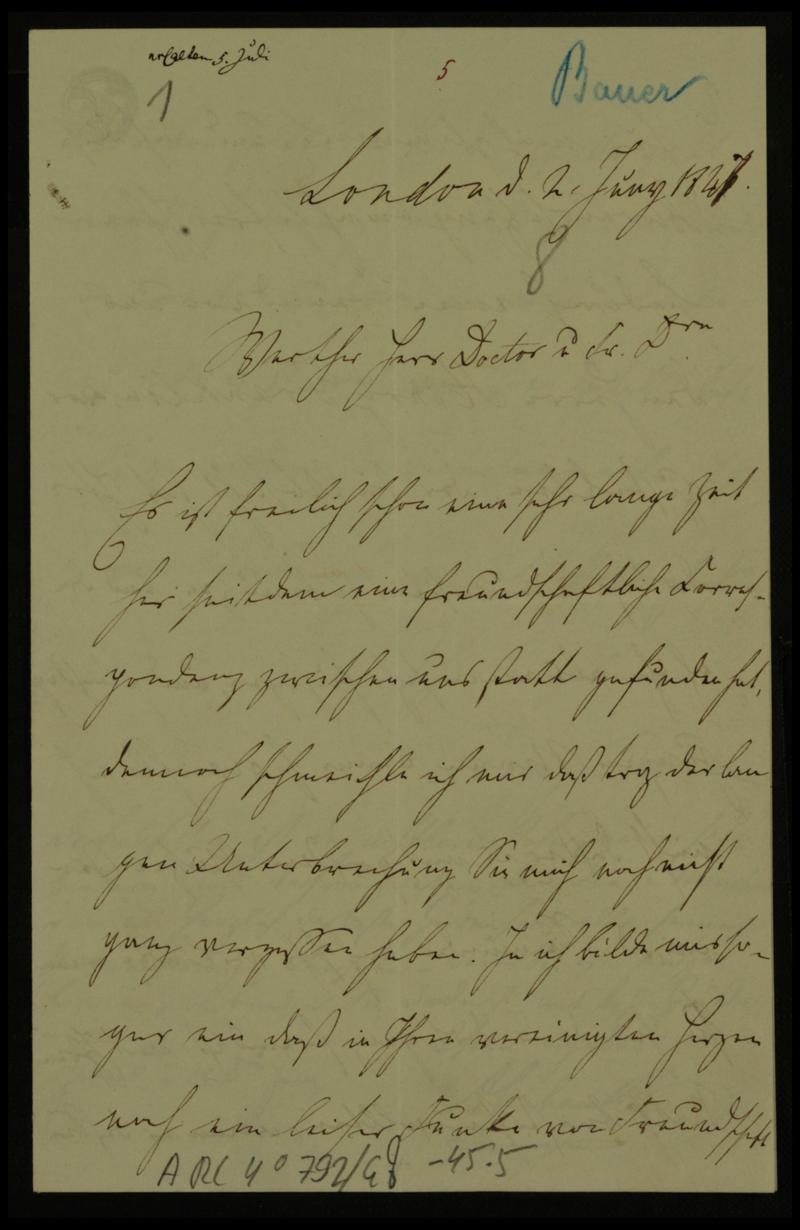 erhalten 5. Juli
5
Bauer
1
London d. 2. Juny 1847.
8
Werther Herr Doctor u Fr. Drn
Es ist freilich schon eine sehr lange Zeit
her seitdem eine freundschaftliche Corres-
pondenz zwischen uns statt gefunden hat,
dennoch schmeichle ich mir daß troz der lan
gen Unterbrechung Sie mich noch nicht
ganz vergessen haben. Ja ich bilde mir so-
gar ein daß in Ihren vereinigten Herzen
noch ein leiser Funke von Freundschaft
ARC 4° 792/G8 -45.5